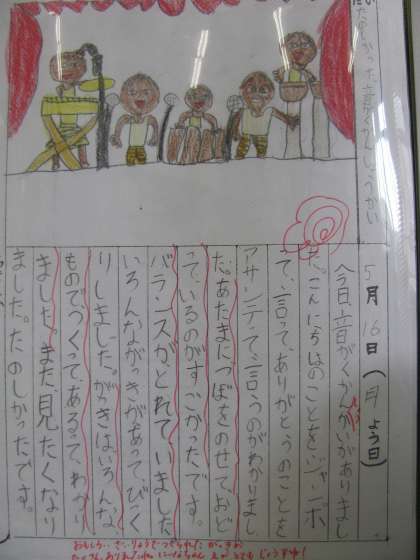 たのしかった音がくかんしょうかい
5月16日(月よう日)
今日、音がくかんしょうかいがありまし
た。こんにちはのことを、ジャンボ
て、言って、ありがとうのことを
アサンテて、言うのがわかりまし
た。あたまにつぼをのせて、おど
って、いるのがすごかったです。
バランスがとれていました
いろんながっきがあってびっく
りしました。がっきは、いろんな
ものでつくってあるって、わかり
ました。また、見たくなり
ました。たのしかったです。